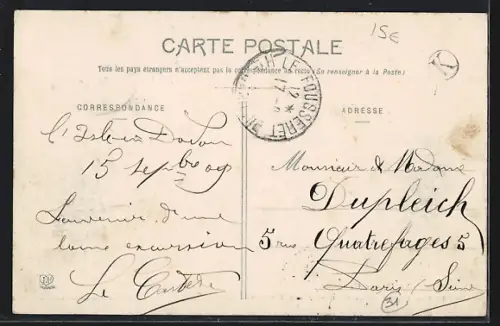 15€
CARTE POSTALE
Tous les pays étrangers n'acceptent pas la correspondance au recto (Se renseigner à la Poste)
CORRESPONDANCE
ADRESSE
LE FOUSSERET
12
17 -
L'Isle en Dodon
15 septbre 09
Souvenir d'une
bonne excursion
Monsieur & Madame
Dupleich
5 rue Quatrefages 5
Paris (Seine)
31